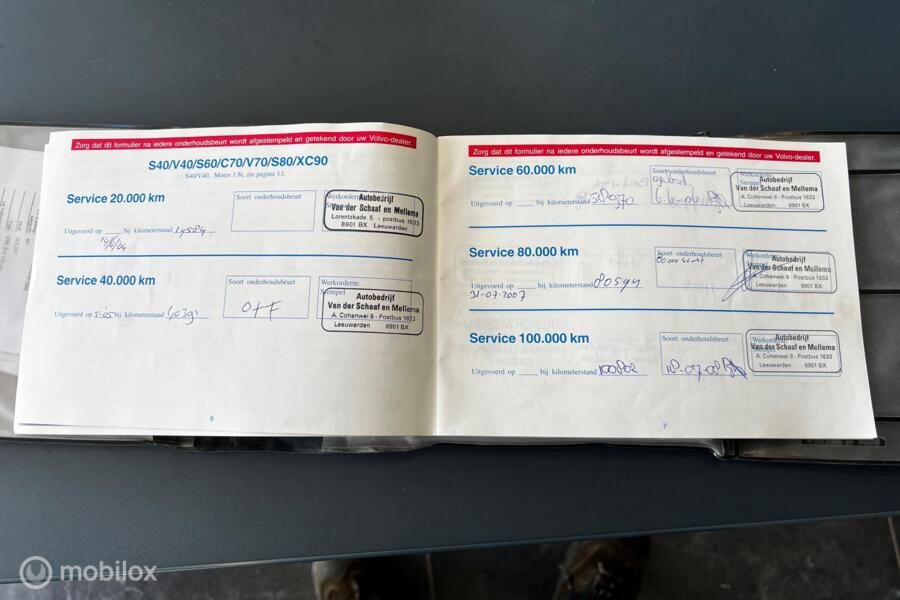 Zorg dat dit formulier na iedere onderhoudsbeurt wordt afgestempeld en getekend door uw Volvo-dealer.
S40/V40/S60/C70/V70/S80/XC90
S40/V40, Motor 1.8i, zie pagina 13.
Service 20.000 km
Soort onderhoudsbeurt
Werkordernr.
Stempel
Autobedrijf
Van der Schaaf en Mellema
Lorentzkade 5 - postbus 1633
8901 BX Leeuwarden
Uitgevoerd op ____ bij kilometerstand 19584
Service 40.000 km
Soort onderhoudsbeurt
Werkordernr.
Stempel
Autobedrijf
Van der Schaaf en Mellema
A. Cohenwei 9 - Postbus 1633
Leeuwarden 8901 BX
Uitgevoerd op 5-05 bij kilometerstand
6
Zorg dat dit formulier na iedere onderhoudsbeurt wordt afgestempeld en getekend door uw Volvo-dealer.
Service 60.000 km
Soort onderhoudsbeurt
Werkordernr.
Stempel
Autobedrijf
Van der Schaaf en Mellema
A. Cohenwei 9 - Postbus 1633
Leeuwarden 8901 BX
Uitgevoerd op ____ bij kilometerstand 58970
6-6-06
Service 80.000 km
Soort onderhoudsbeurt
Autobedrijf
Van der Schaaf en Mellema
A. Cohenwei 9 - Postbus 1633
Leeuwarden 8901 BX
Uitgevoerd op ____ bij kilometerstand
31-07-2007
Service 100.000 km
Soort onderhoudsbeurt
Autobedrijf
Van der Schaaf en Mellema
A. Cohenwei 9 - Postbus 1633
Leeuwarden 8901 BX
Uitgevoerd op ____ bij kilometerstand 100802
18-07-08
7
mobilox